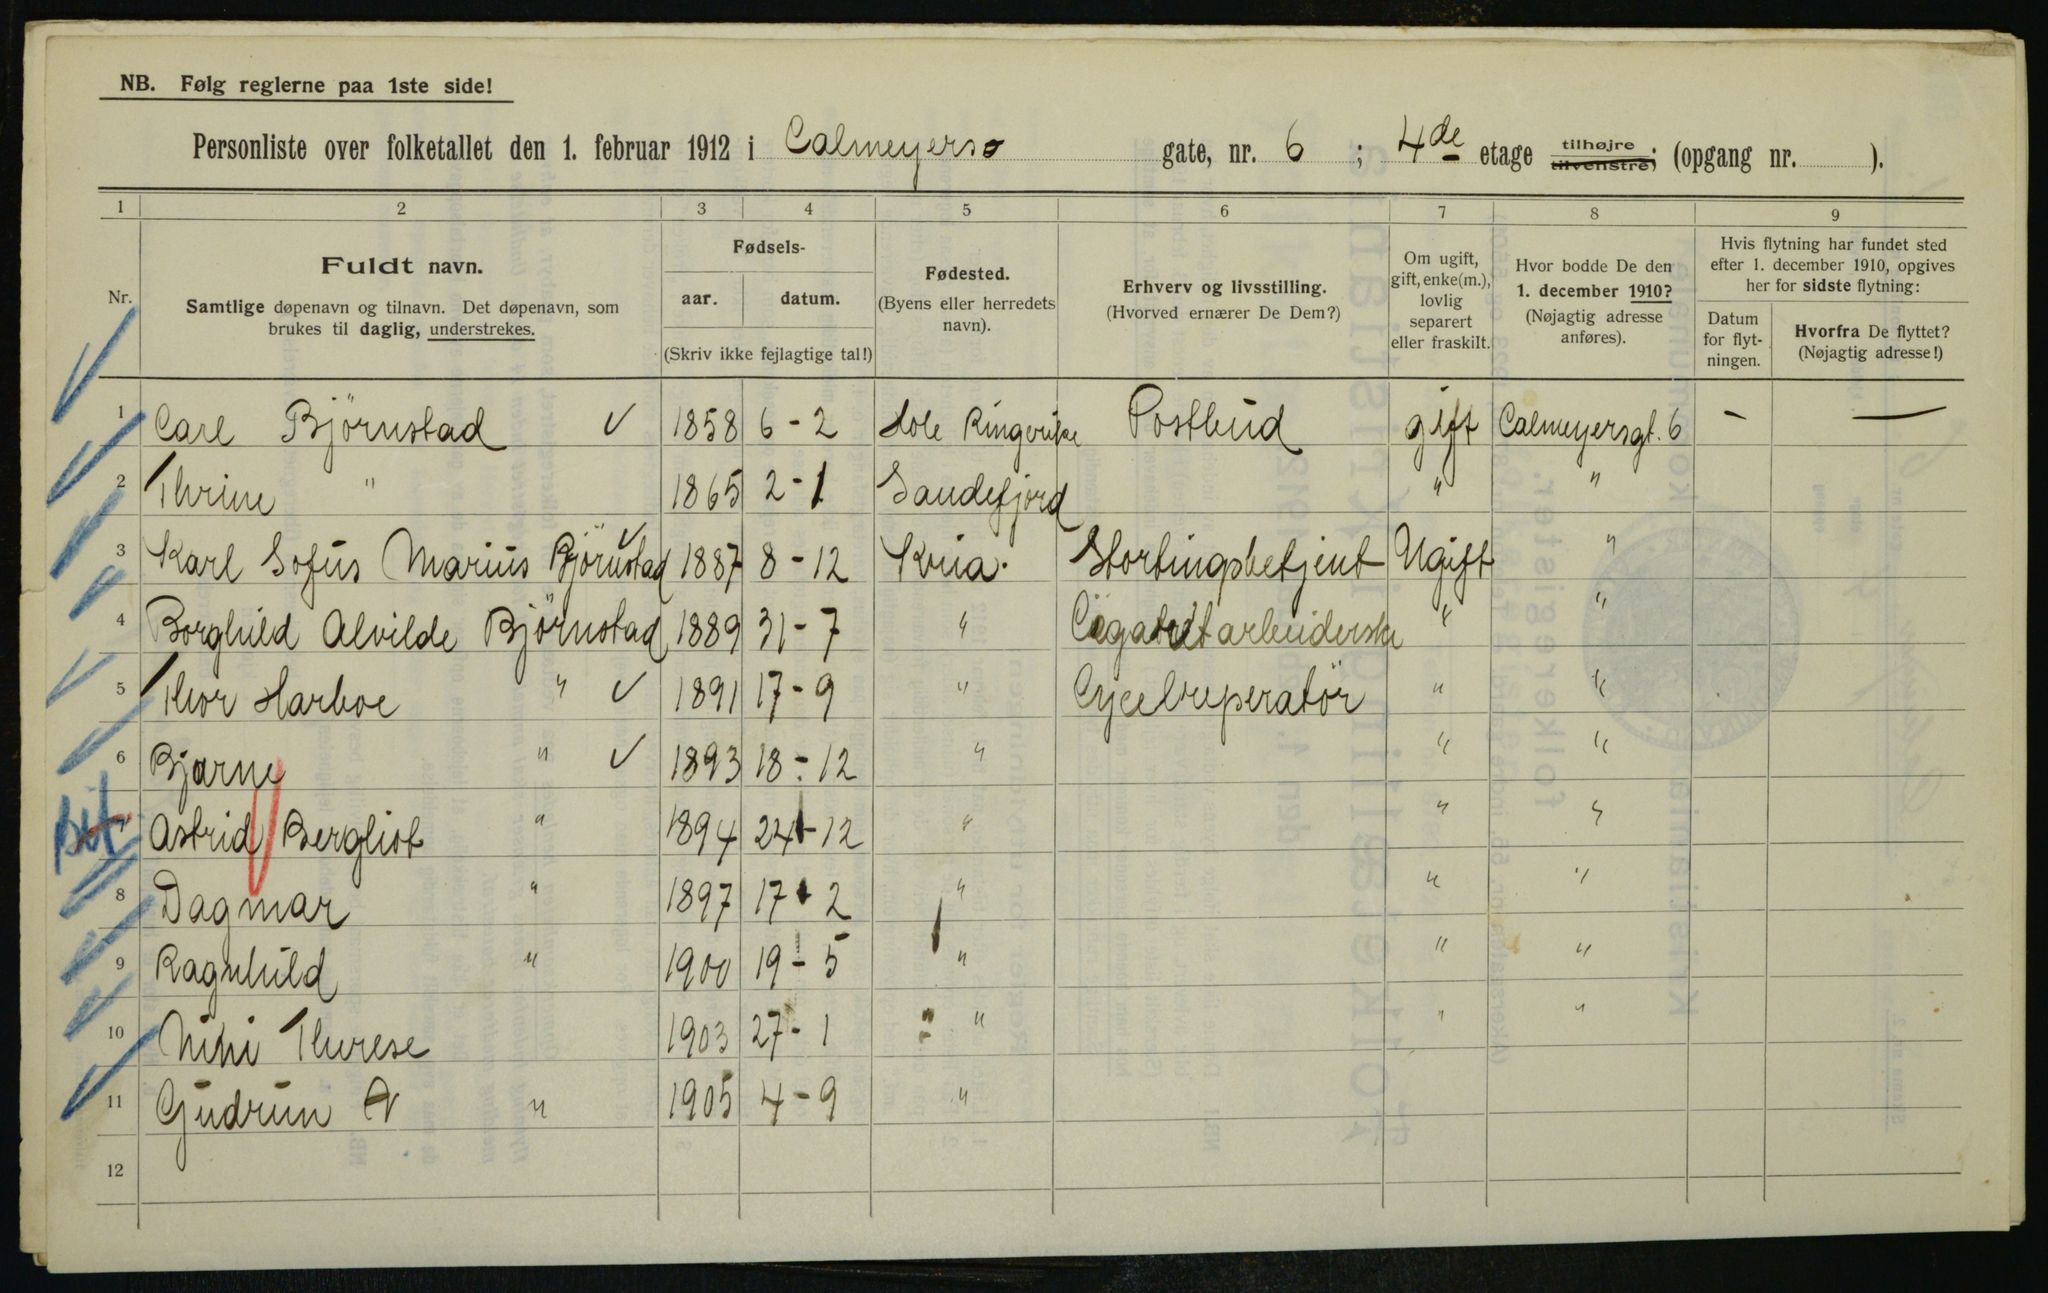 NB. Følg reglerne paa 1ste side!
Personliste over folketallet den 1. februar 1912 i Calmeyers gate, nr. 6 ; 4de etage tilhøjre tilvenstre; (opgang nr. ).
1 2 3 4 5 6 7 8 9
Nr.
Fuldt navn.
Samtlige døpenavn og tilnavn. Det døpenavn, som
brukes til daglig, understrekes.
Fødsels-
aar. datum.
(Skriv ikke fejlagtige tal!)
Fødested.
(Byens eller herredets
navn).
Erhverv og livsstilling.
(Hvorved ernærer De Dem?)
Om ugift,
gift, enke(m.),
lovlig
separert
eller fraskilt.
Hvor bodde De den
1. december 1910?
(Nøjagtig adresse
anføres).
Hvis flytning har fundet sted
efter 1. december 1910, opgives
her for sidste flytning:
Datum
for flyt-
ningen.
Hvorfra De flyttet?
(Nøjagtig adresse!)
1 Carl Björnstad ✓ 1858 6 - 2 Hole Ringerike Postbud gift Calmeyersgt. 6 - —
2 Thrine " 1865 2 - 1 Sandefjord " "
3 Karl Sofus Marius Björnstad ✓ 1887 8 - 12 Kria. Stortingsbetjent Ugift "
4 Borghild Alvilde Björnstad 1889 31 - 7 " Cigaretarbeiderske " "
5 Thor Harboe " ✓ 1891 17 - 9 " Cycelreperatör " "
6 Bjarne " ✓ 1893 18 - 12 " " "
Astrid Bergliot " 1894 24 - 12 " " "
8 Dagmar " 1897 17 - 2 " " "
9 Ragnhild " 1900 19 - 5 " " "
10 Nini Therese 1903 27 - 1 " " "
11 Gudrun " 1905 4 - 9 "
12